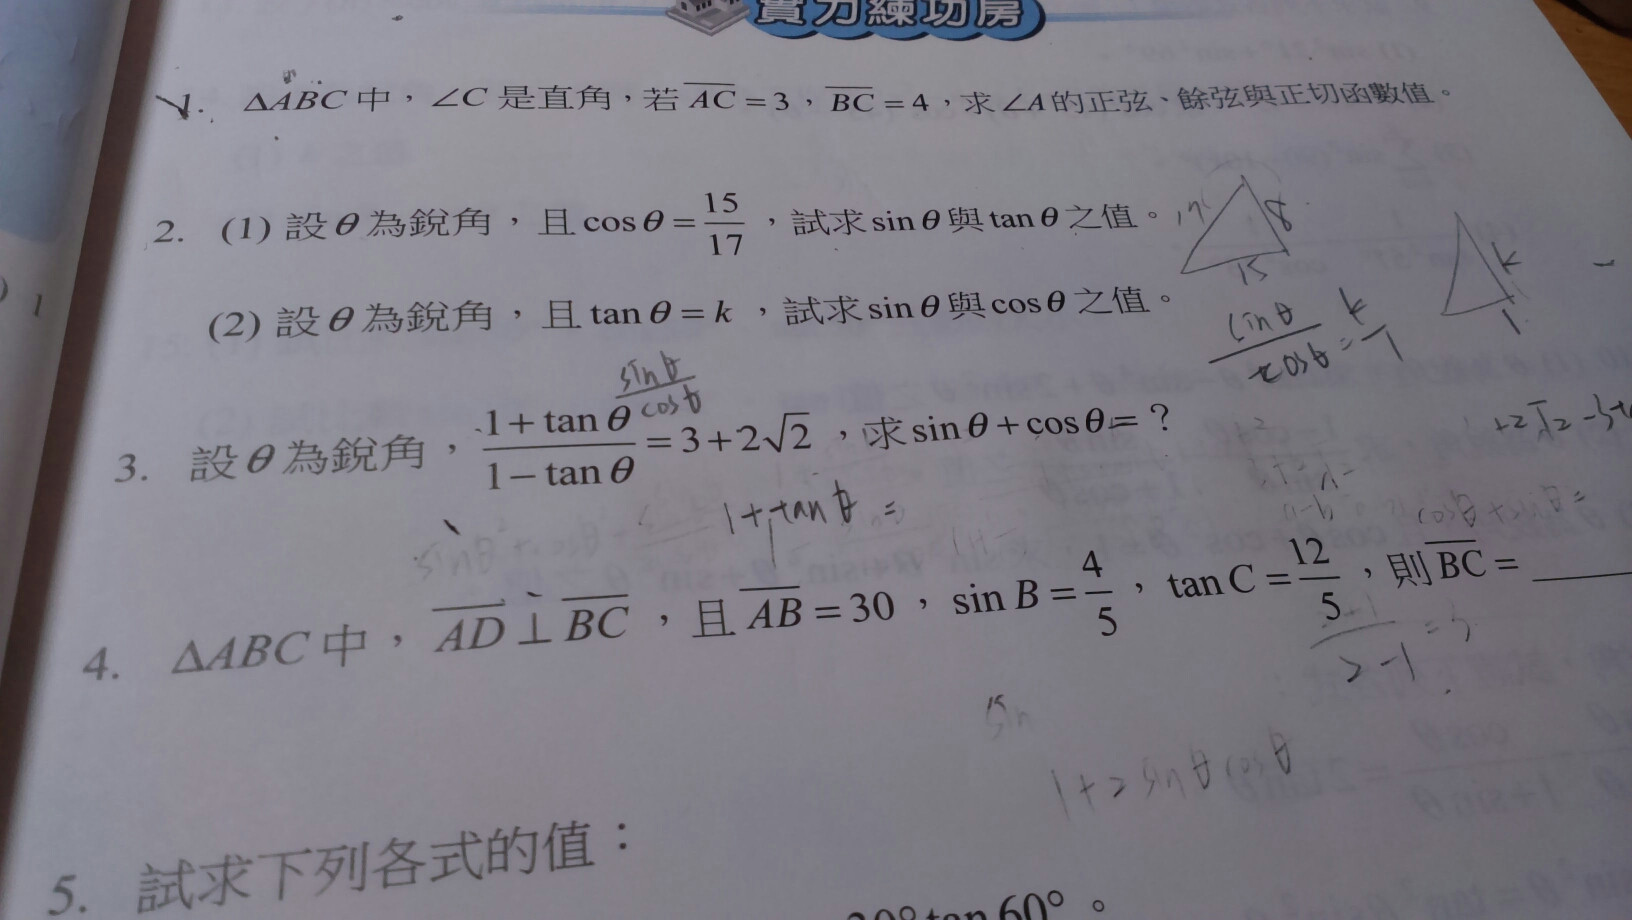 實力練功房
1. ΔABC 中，∠C 是直角，若 AC = 3，BC = 4，求 ∠A 的正弦、餘弦與正切函數值。
2. (1) 設 θ 為銳角，且 cos θ = 15/17，試求 sin θ 與 tan θ 之值。
17 8
15
(2) 設 θ 為銳角，且 tan θ = k，試求 sin θ 與 cos θ 之值。
k
1
sin θ / cos θ = k / 1
sin θ / cos θ
3. 設 θ 為銳角，(1 + tan θ)/(1 − tan θ) = 3 + 2√2，求 sin θ + cos θ = ？
1 + tan θ =
cos θ + sin θ =
4. ΔABC 中，AD ⊥ BC，且 AB = 30，sin B = 4/5，tan C = 12/5，則 BC = ____
sin
1 + 2 sin θ cos θ
5. 試求下列各式的值：
tan 60°。